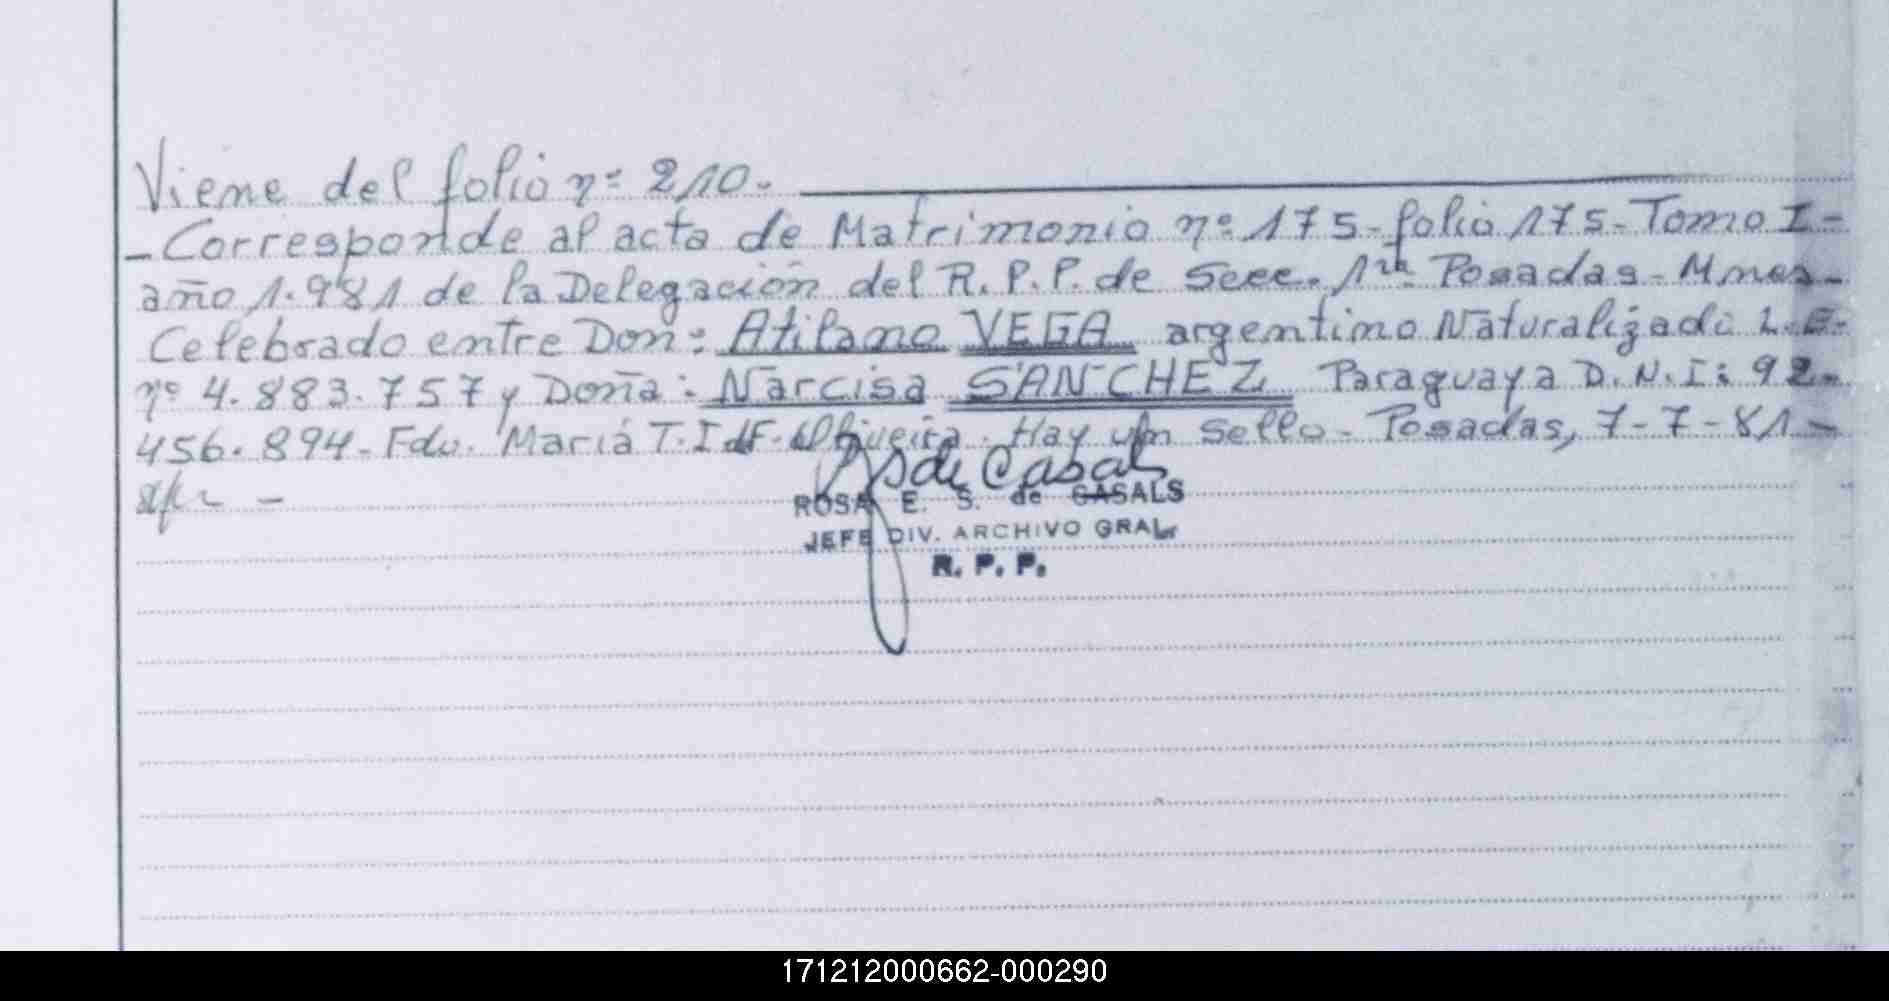 Viene del folio nº 210.
- Corresponde al acta de Matrimonio nº 175 - folio 175 - Tomo I -
año 1.981 de la Delegación del R.P.P. de Secc. 1ra Posadas - Mnes -
Celebrado entre Don: Atilano VEGA argentino Naturalizado L.E.
nº 4.883.757 y Doña: Narcisa SANCHEZ Paraguaya D.N.I: 92.
456.894 - Fdo. María T. I. de F. Hay un sello - Posadas, 7-7-81 -
de Casals
ROSA E. S. de CASALS
JEFE DIV. ARCHIVO GRAL.
R. P. P.
171212000662-000290